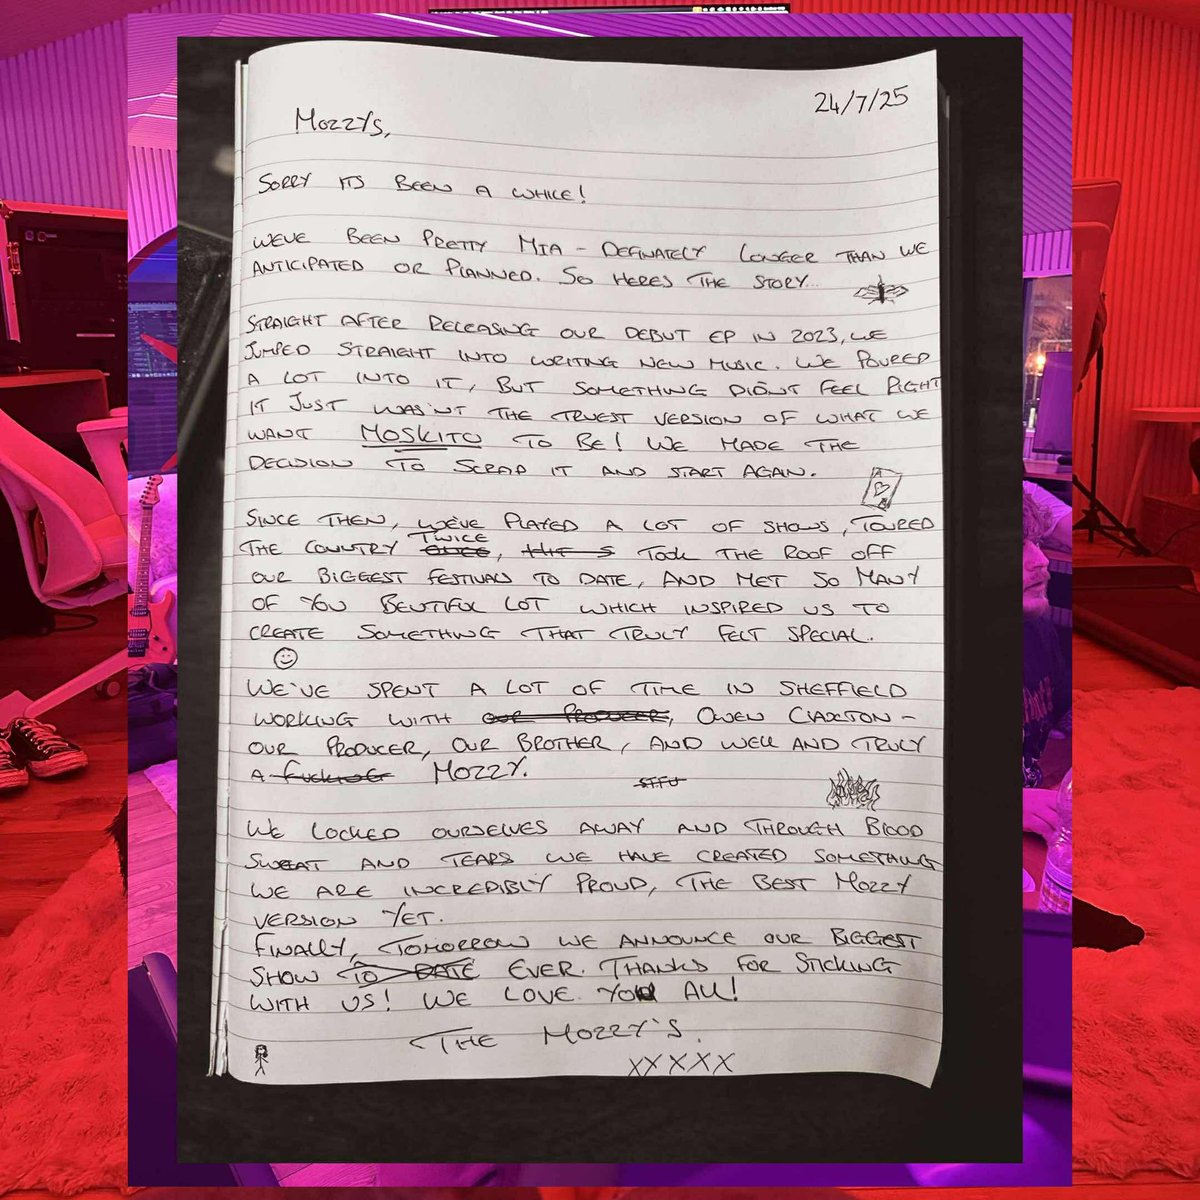 24/7/25
MOZZYS,
SORRY ITS BEEN A WHILE!
WEVE BEEN PRETTY MIA - DEFINATELY LONGER THAN WE
ANTICIPATED OR PLANNED. SO HERES THE STORY...
STRAIGHT AFTER RELEASING OUR DEBUT EP IN 2023, WE
JUMPED STRAIGHT INTO WRITING NEW MUSIC. WE POURED
A LOT INTO IT, BUT SOMETHING DIDN'T FEEL RIGHT
IT JUST WASN'T THE TRUEST VERSION OF WHAT WE
WANT MOSKITO TO BE! WE MADE THE
DECISION TO SCRAP IT AND START AGAIN.
SINCE THEN, WE'VE PLAYED A LOT OF SHOWS, TOURED
TWICE
THE COUNTRY ONCE, THE S TOOK THE ROOF OFF
OUR BIGGEST FESTIVALS TO DATE, AND MET SO MANY
OF YOU BEUTIFUL LOT WHICH INSPIRED US TO
CREATE SOMETHING THAT TRULY FELT SPECIAL.
WE'VE SPENT A LOT OF TIME IN SHEFFIELD
WORKING WITH OUR PRODUCER, OWEN CLAXTON -
OUR PRODUCER, OUR BROTHER, AND WELL AND TRULY
A FUCKING MOZZY.
STFU
WE LOCKED OURSELVES AWAY AND THROUGH BLOOD
SWEAT AND TEARS WE HAVE CREATED SOMETHING
WE ARE INCREDIBLY PROUD, THE BEST MOZZY
VERSION YET.
FINALLY, TOMORROW WE ANNOUNCE OUR BIGGEST
SHOW TO DATE EVER. THANKS FOR STICKING
WITH US! WE LOVE YOU ALL!
THE MOZZY'S.
XXXXX